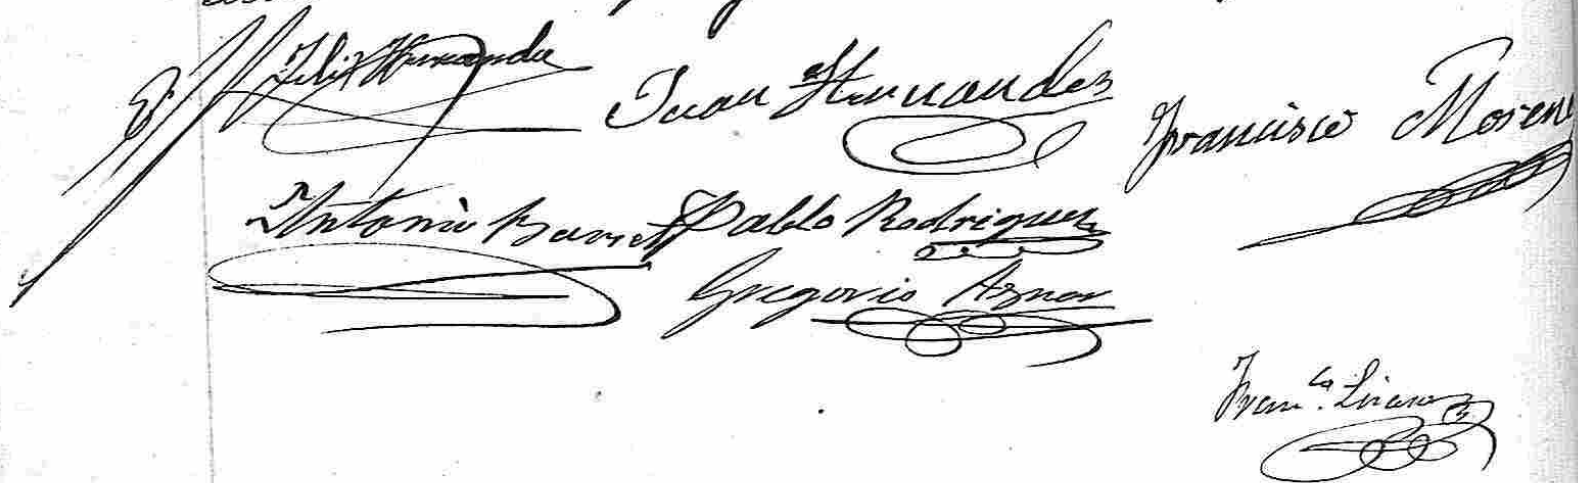 Felix Hernandez
Juan Hernandez
Francisco Moreno
Antonio
Pablo Rodriguez
Gregorio Aznar
Fran.co